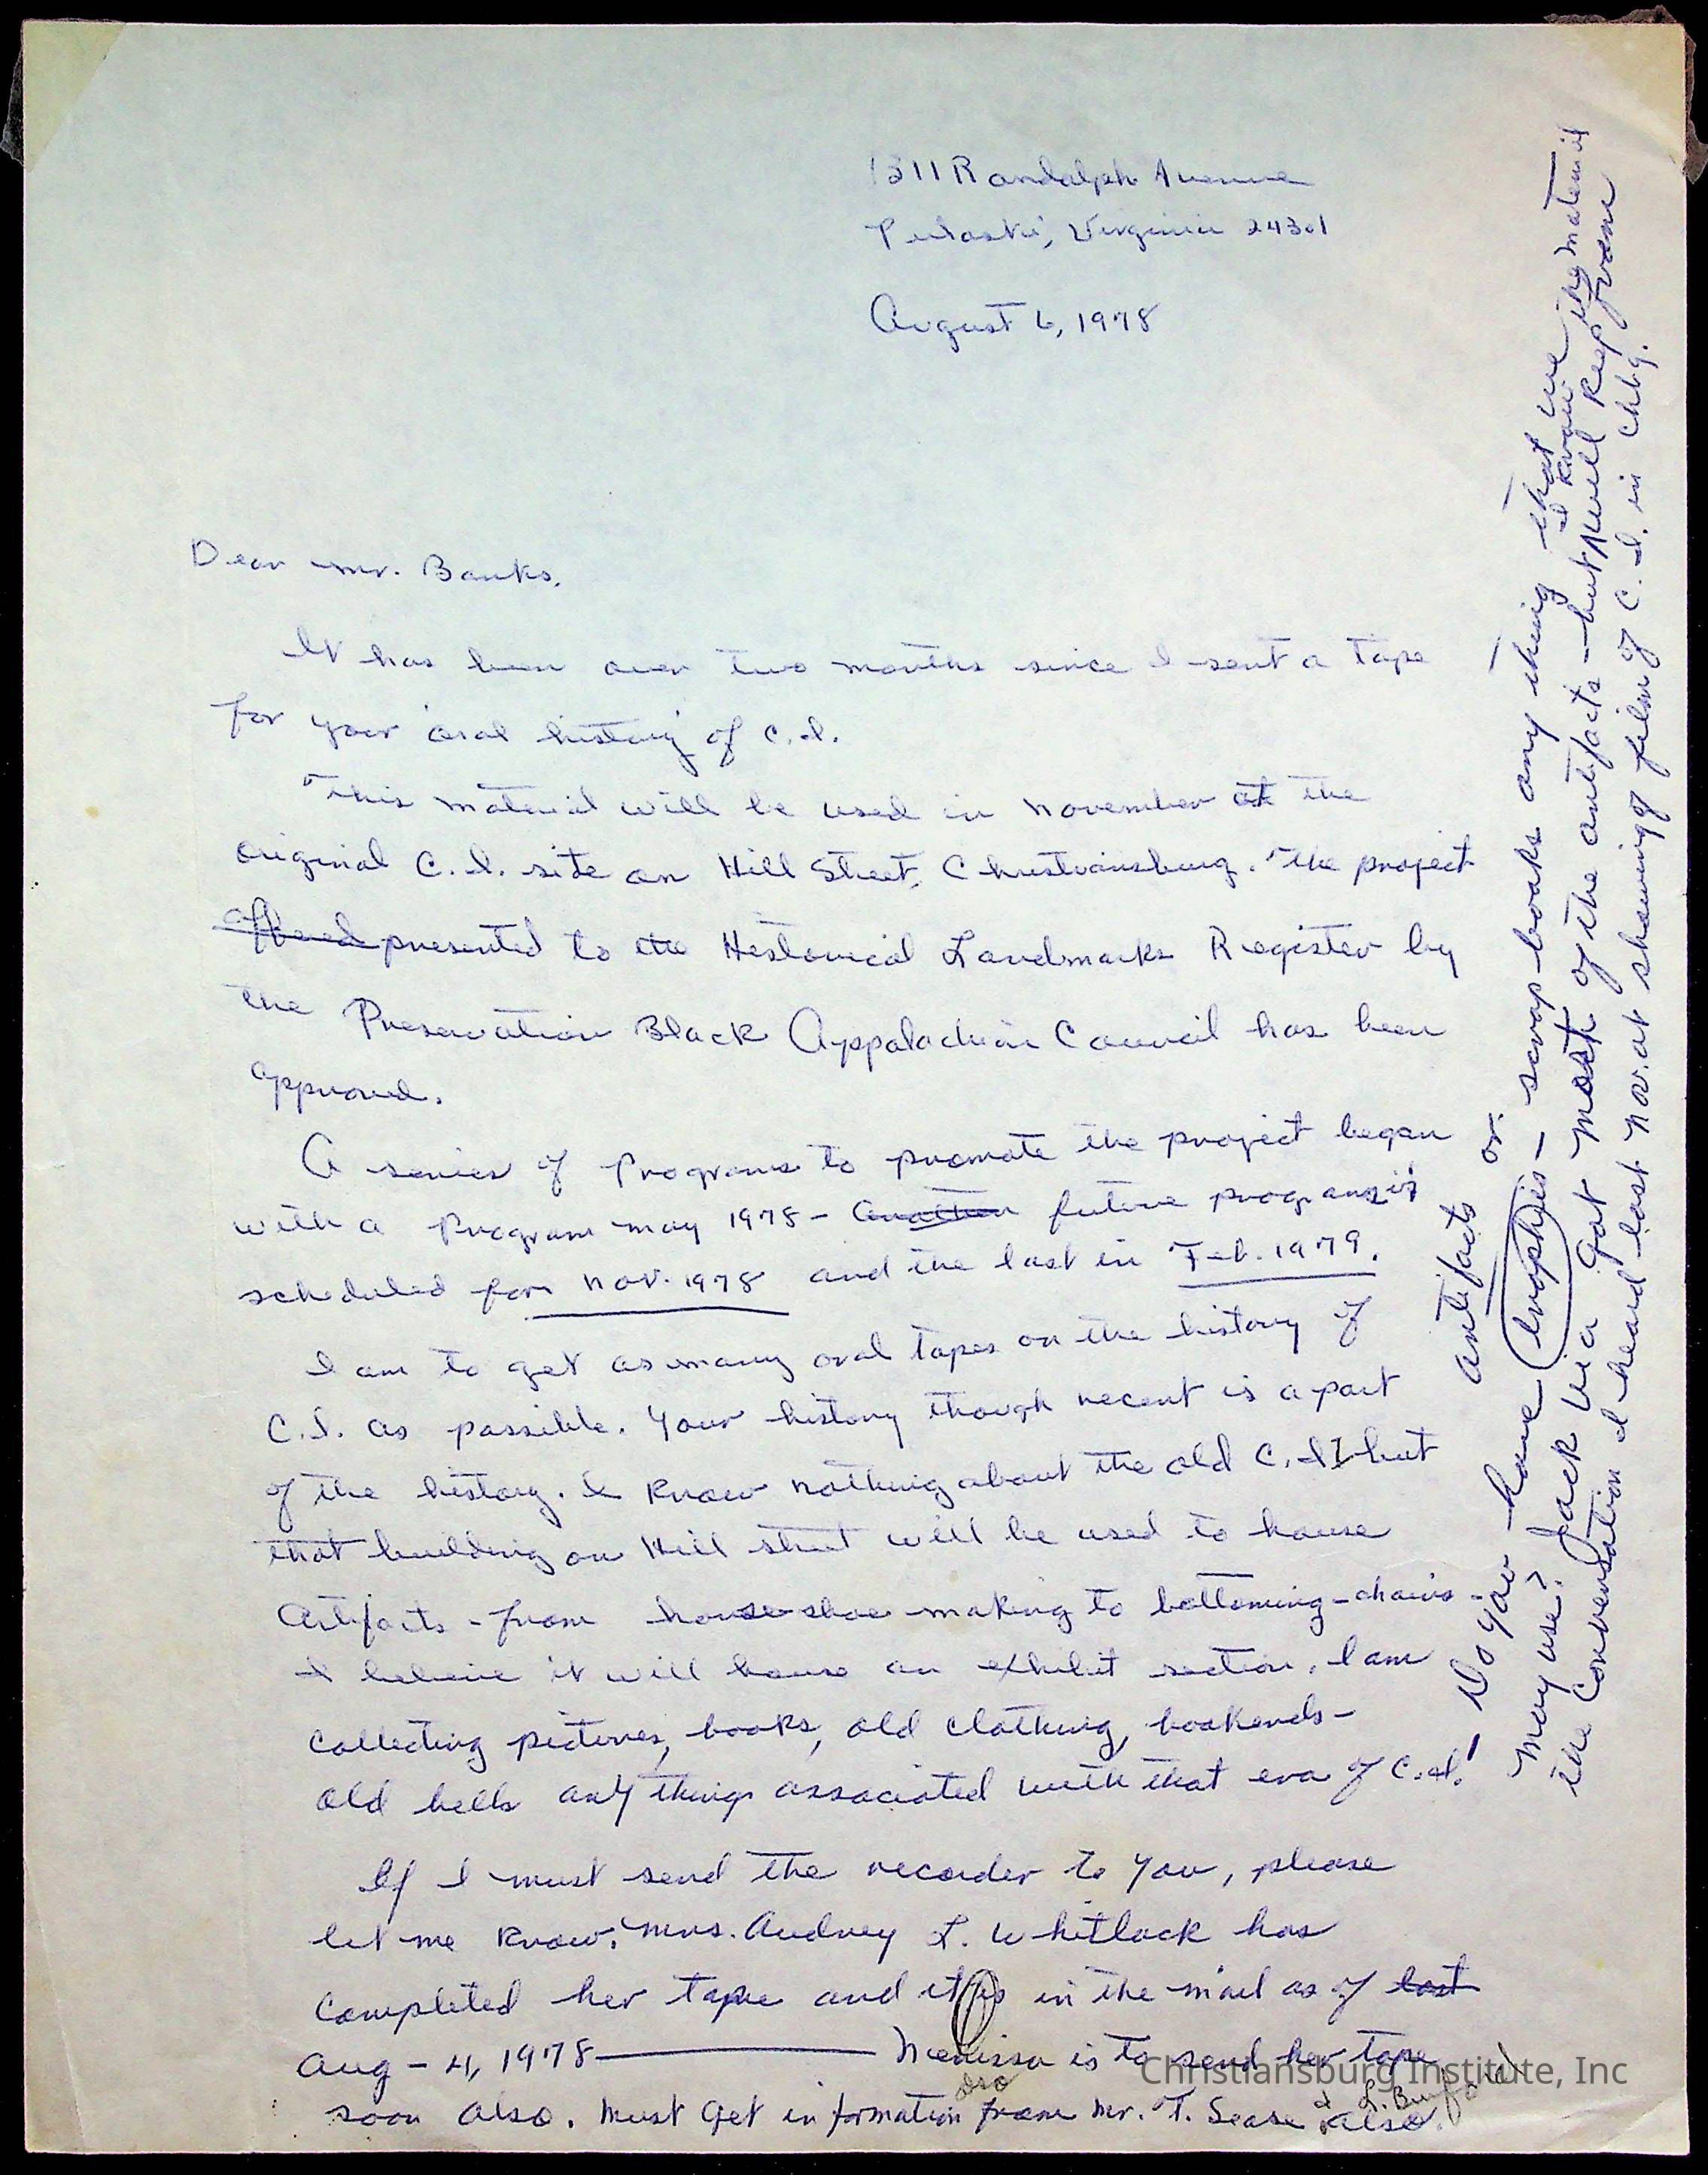 1311 Randolph Avenue
Pulaski, Virginia 24301
August 6, 1978
Dear Mr. Banks,
It has been over two months since I sent a tape
for your 'oral history' of C.I.
This material will be used in November at the
original C.I. site on Hill Street, Christiansburg. The project
offered presented to the Historical Landmarks Register by
the Preservation Black Appalachian Council has been
approved.
A series of Programs to promote the project began
with a Program May 1978 - Another future program is
scheduled for Nov. 1978 and the last in Feb. 1979.
I am to get as many oral tapes on the history of
C.I. as possible. Your history though recent is a part
of the history. I know nothing about the old C.I. but
that building on Hill street will be used to house
Artifacts - from horse shoe making to bottoming - chairs -
I believe it will house an exhibit section. I am
collecting pictures, books, old clothing, bookends -
old bells any things associated with that era of C.I.!
If I must send the recorder to you, please
let me know. Mrs. Audrey L. Whitlock has
completed her tape and it is in the mail as of last
Aug - 4, 1978 ——— is to send her tape
soon also. Must get information from Mr. T. Sease & L. Burford also.
also
Do you have artifacts or
trophies - scrap-books any thing that we
may use? Jack Via got most of the artifacts - but I know the material
the conversation I heard last Nov. at showing of film of C.I. in Chbg.
will keep from
Christiansburg Institute, Inc